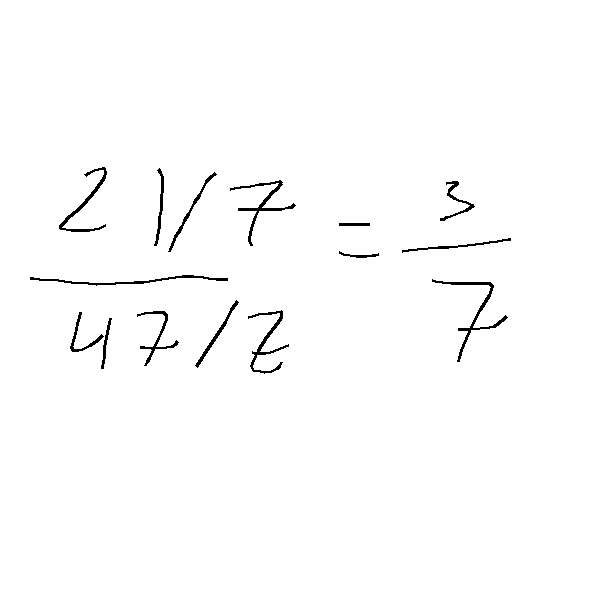 21/7
47/7 = 3/7